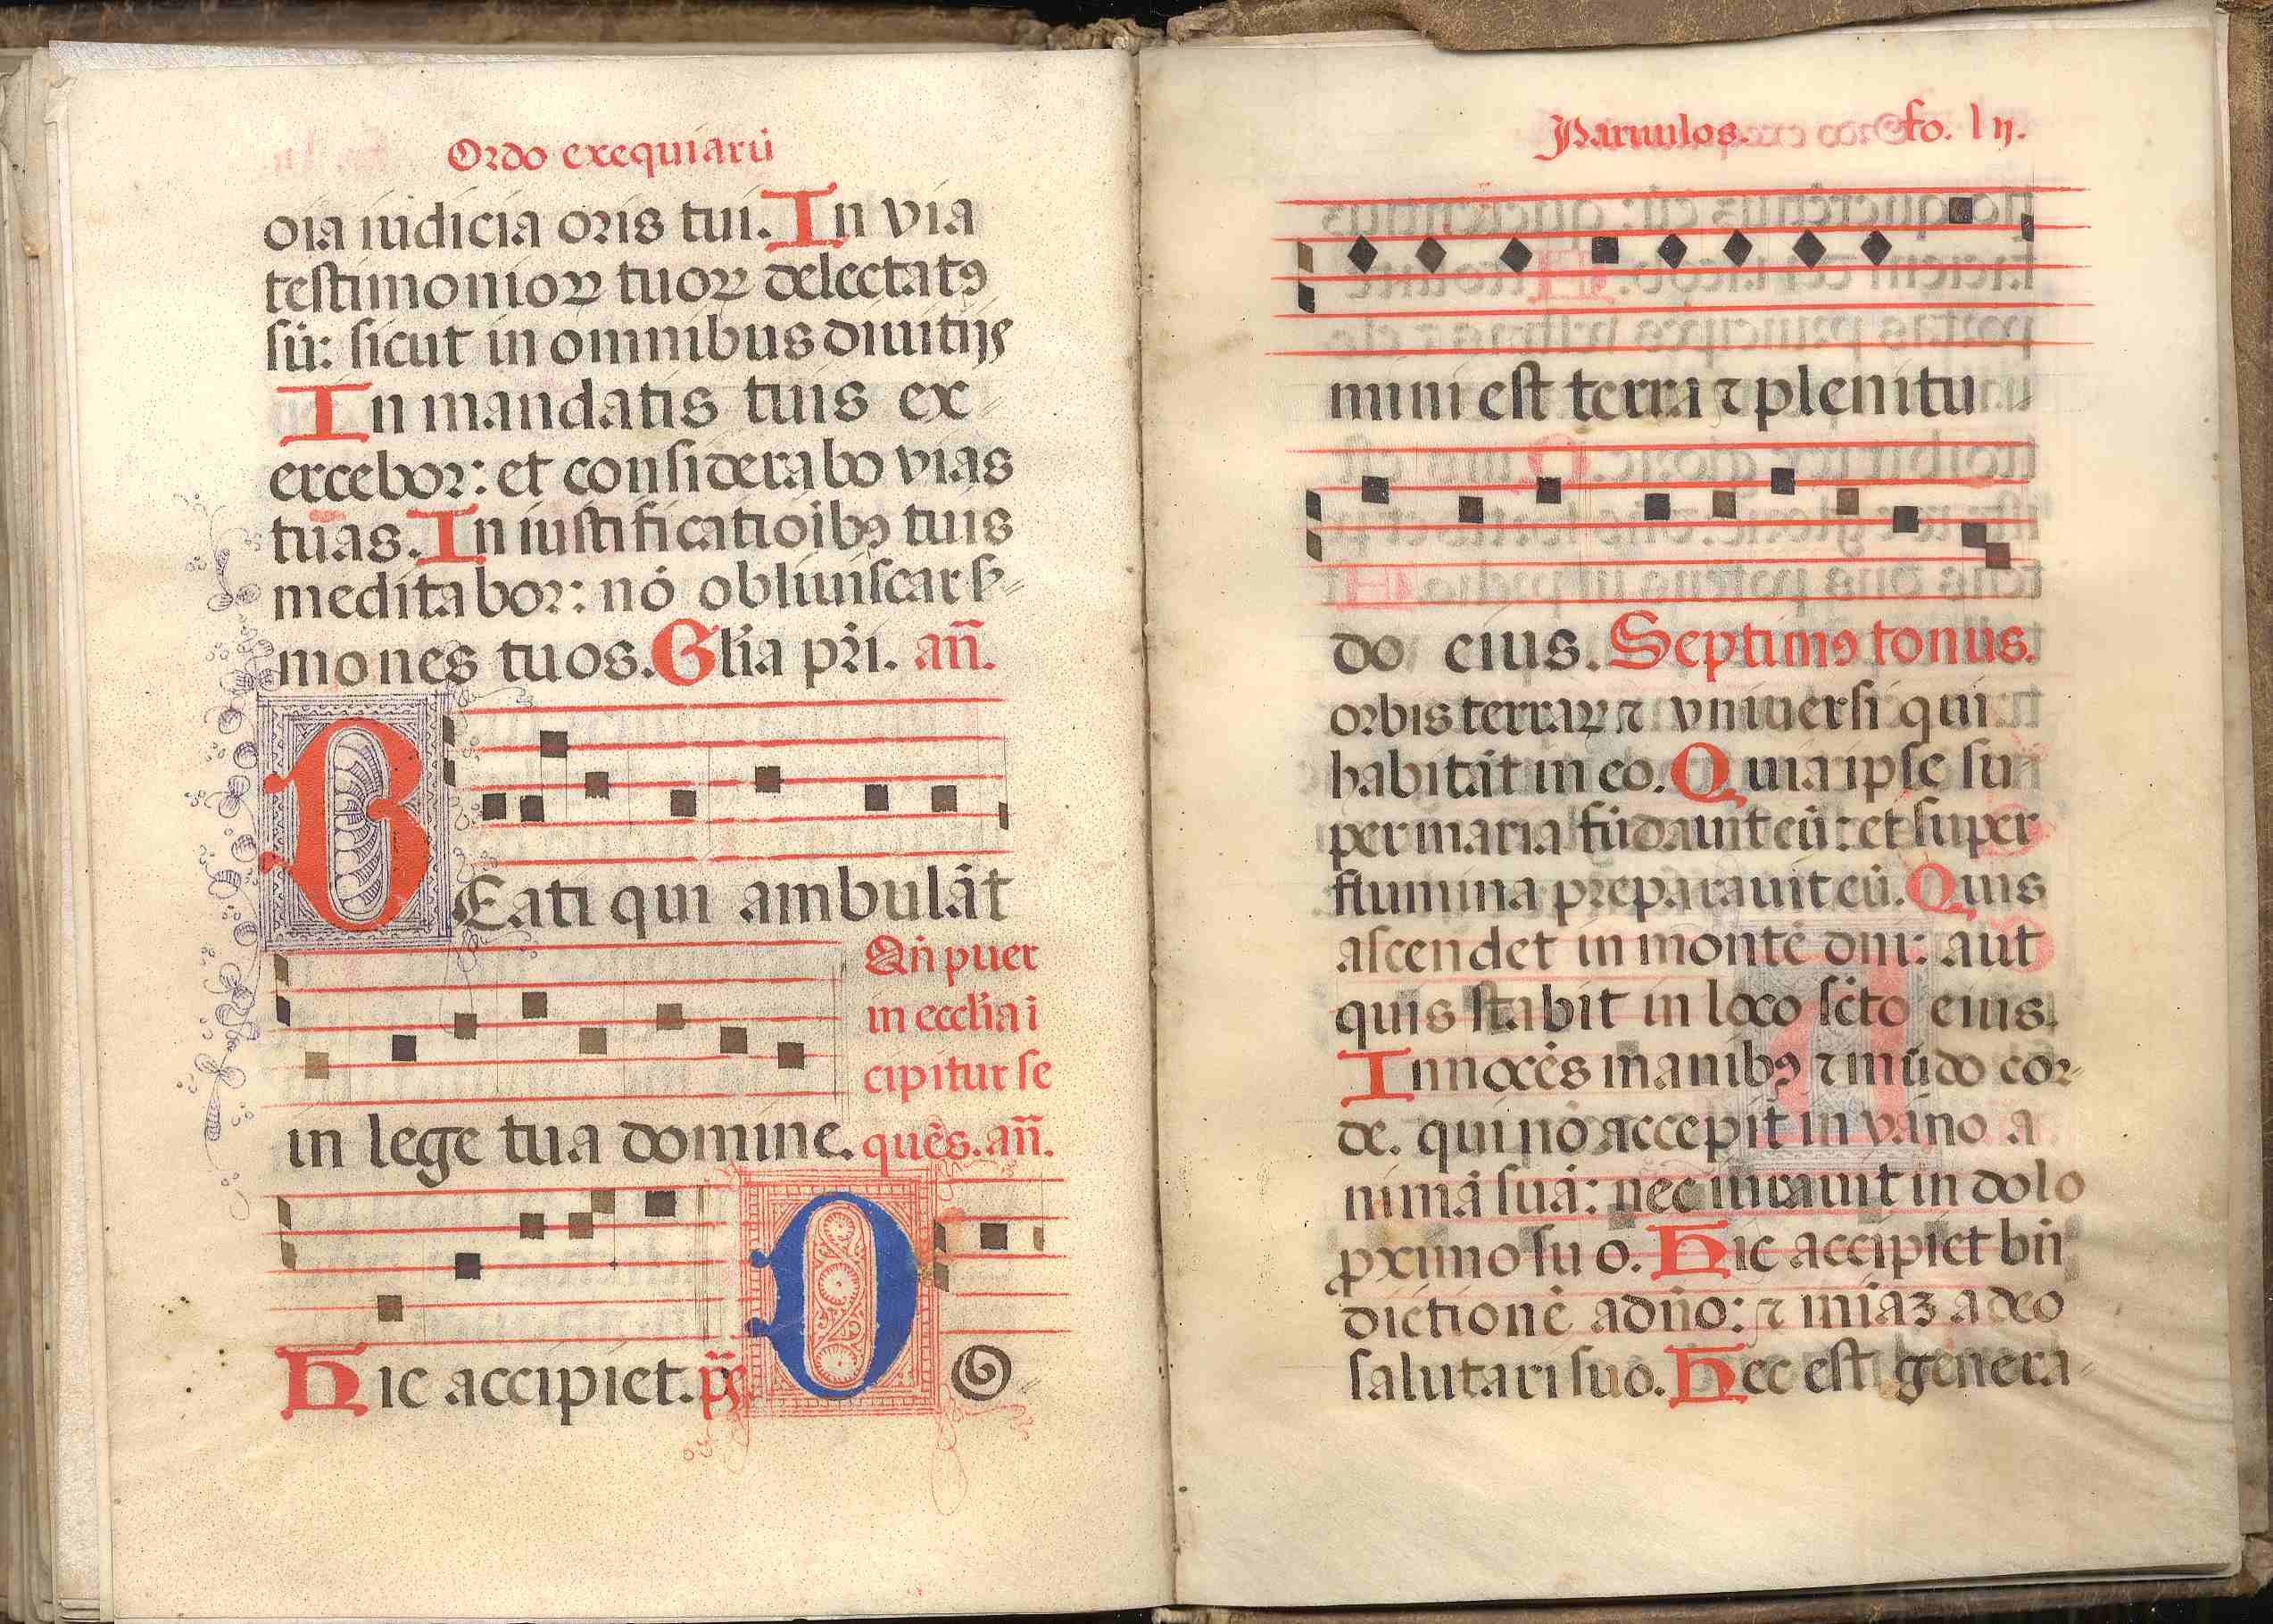 Ordo exequiarū
oīa iudicia oris tui. In via
testimonioꝝ tuoꝝ delectatꝰ
sū: sicut in omnibus diuitijs
In mandatis tuis ex-
ercebor: et considerabo vias
tuas. In iustificatiōibꝰ tuis
meditabor: nō obliuiscar s̄-
mones tuos. Glīa pr̄i. an̄.
BEati qui ambulāt
Qn̄ puer
in ecclīa i
cipitur se
in lege tua domine. quēs. an̄.
Hic accipiet. ps̄. DO
Paruulos. fo. lij.
mini est terra ⁊ plenitu
do eius. Septimꝰ tonus.
orbis terraꝝ ⁊ vniuersi qui
habitāt in eo. Quia ipse su
per maria fūdauit eū: et super
flumina preparauit eū. Quis
ascendet in montē dn̄i: aut
quis stabit in loco scto eius.
Innocēs manibꝰ ⁊ mūdo cor-
de. qui nō accepit in vano a
nimā suā: nec iurauit in dolo
ꝓximo suo. Hic accipiet bn̄
dictionē a dn̄o: ⁊ mīaꝫ a deo
salutari suo. Hec est genera-